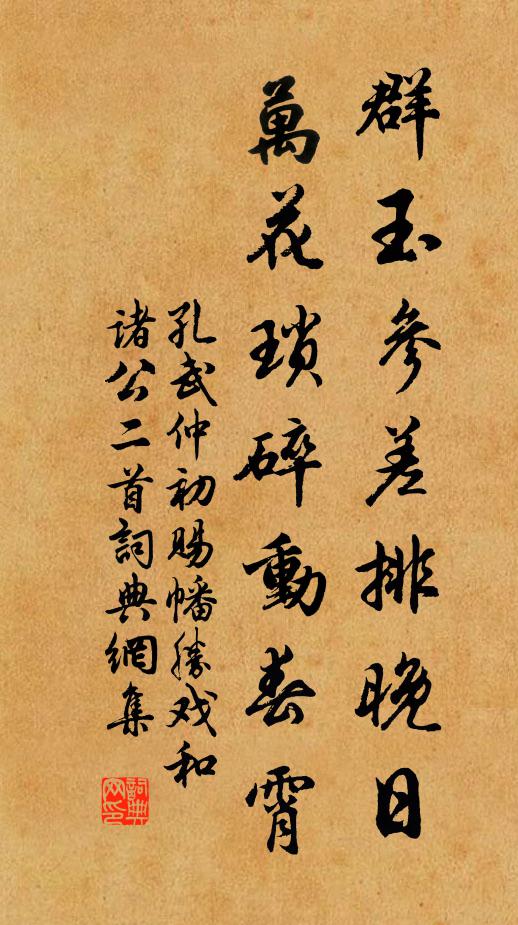 群玉參差排晚日
萬花瑣碎動春霄
孔武仲初賜幡勝戏和
諸公二首詞典網集
詞典
网印